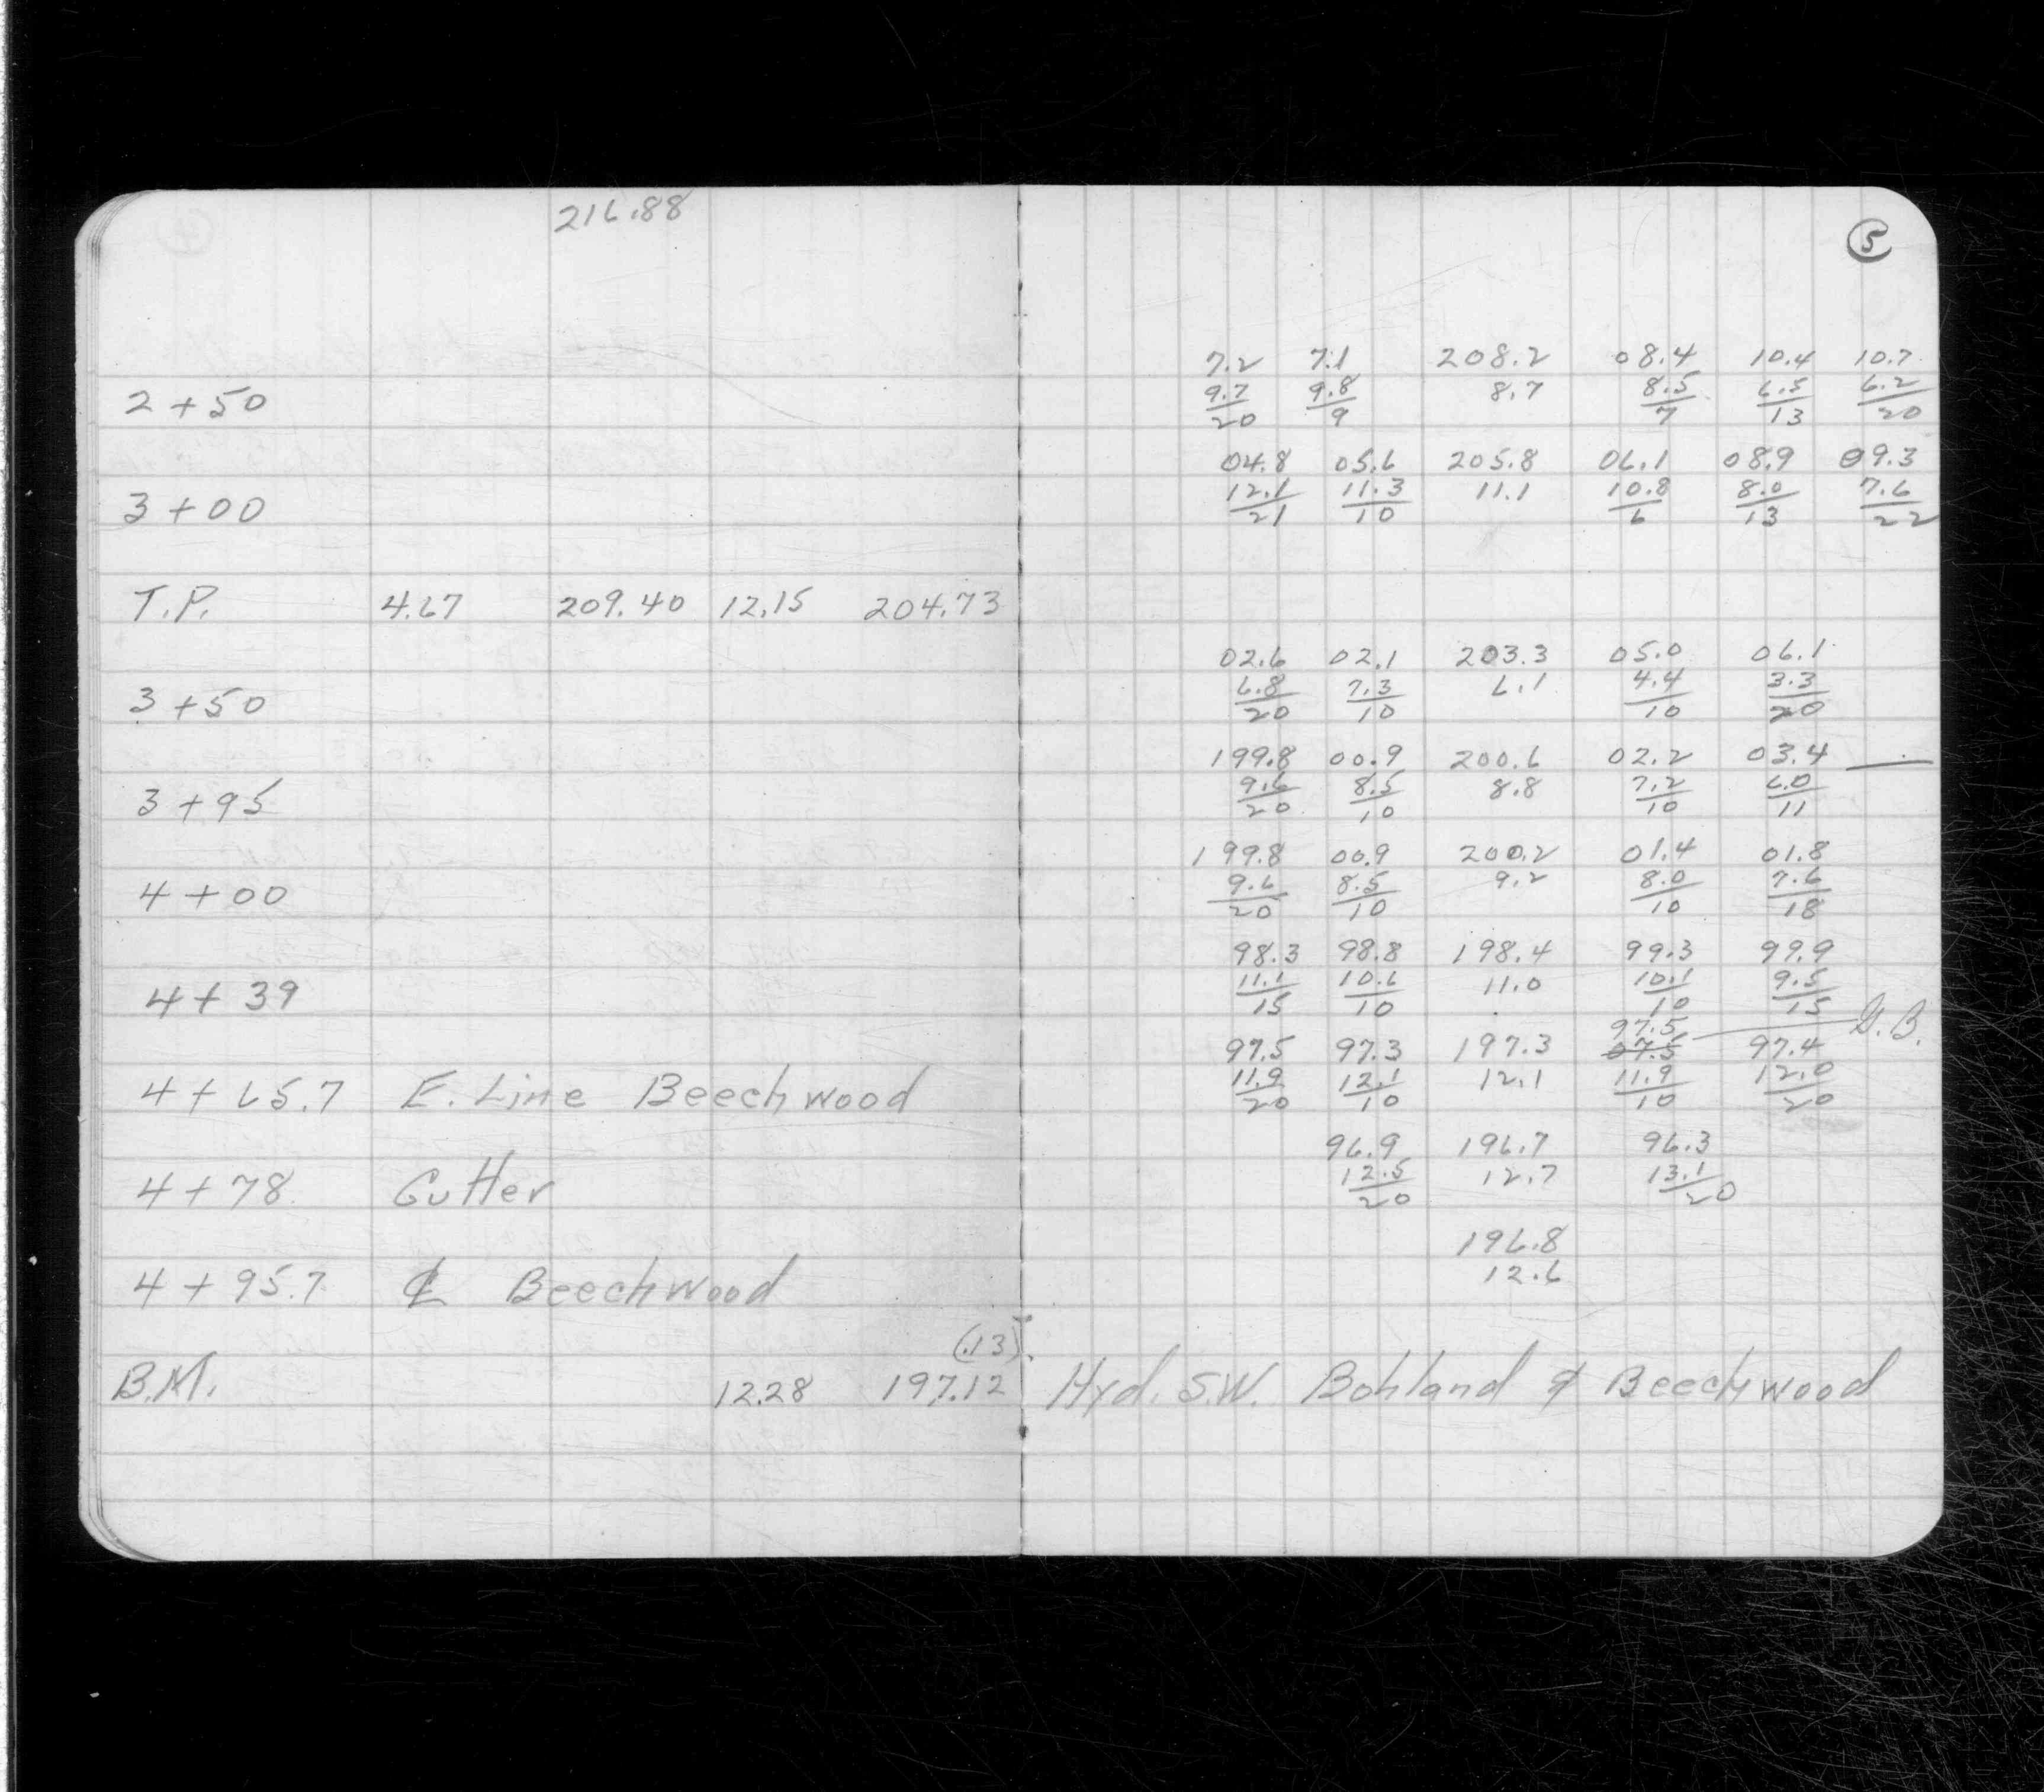 216.88
5
7.2 7.1 208.2 08.4 10.4 10.7
2+50 9.7/20 9.8/9 8.7 8.5/7 6.5/13 6.2/20
04.8 05.6 205.8 06.1 08.9 09.3
3+00 12.1/21 11.3/10 11.1 10.8/6 8.0/13 7.6/22
T.P. 4.67 209.40 12.15 204.73
02.6 02.1 203.3 05.0 06.1
3+50 6.8/20 7.3/10 6.1 4.4/10 3.3/20
199.8 00.9 200.6 02.2 03.4 —
3+95 9.6/20 8.5/10 8.8 7.2/10 6.0/11
199.8 00.9 200.2 01.4 01.8
4+00 9.6/20 8.5/10 9.2 8.0/10 7.6/18
98.3 98.8 198.4 99.3 99.9
4+39 11.1/15 10.6/10 11.0 10.1/10 9.5/15
97.5 G.B.
97.5 97.3 197.3 07.5 97.4
4+65.7 E. Line Beechwood 11.9/20 12.1/10 12.1 11.9/10 12.0/20
96.9 196.7 96.3
4+78 Gutter 12.5/20 12.7 13.1/20
196.8
4+95.7 ℄ Beechwood 12.6
(.13)
B.M. 12.28 197.12 Hyd. S.W. Bohland & Beechwood